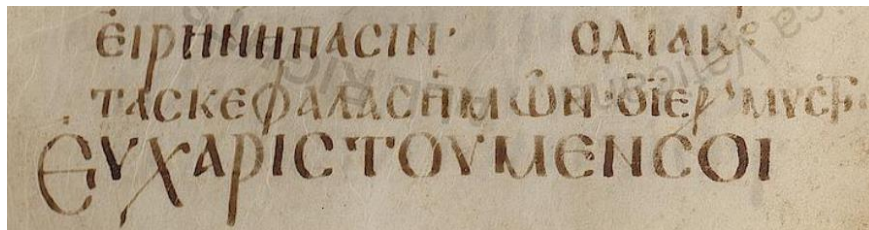 ἐιρηνηπασιν· οδιακ
τασκεφαλασἡμῶν· ὁϊερ'
Ἐυχαριστουμενσοι